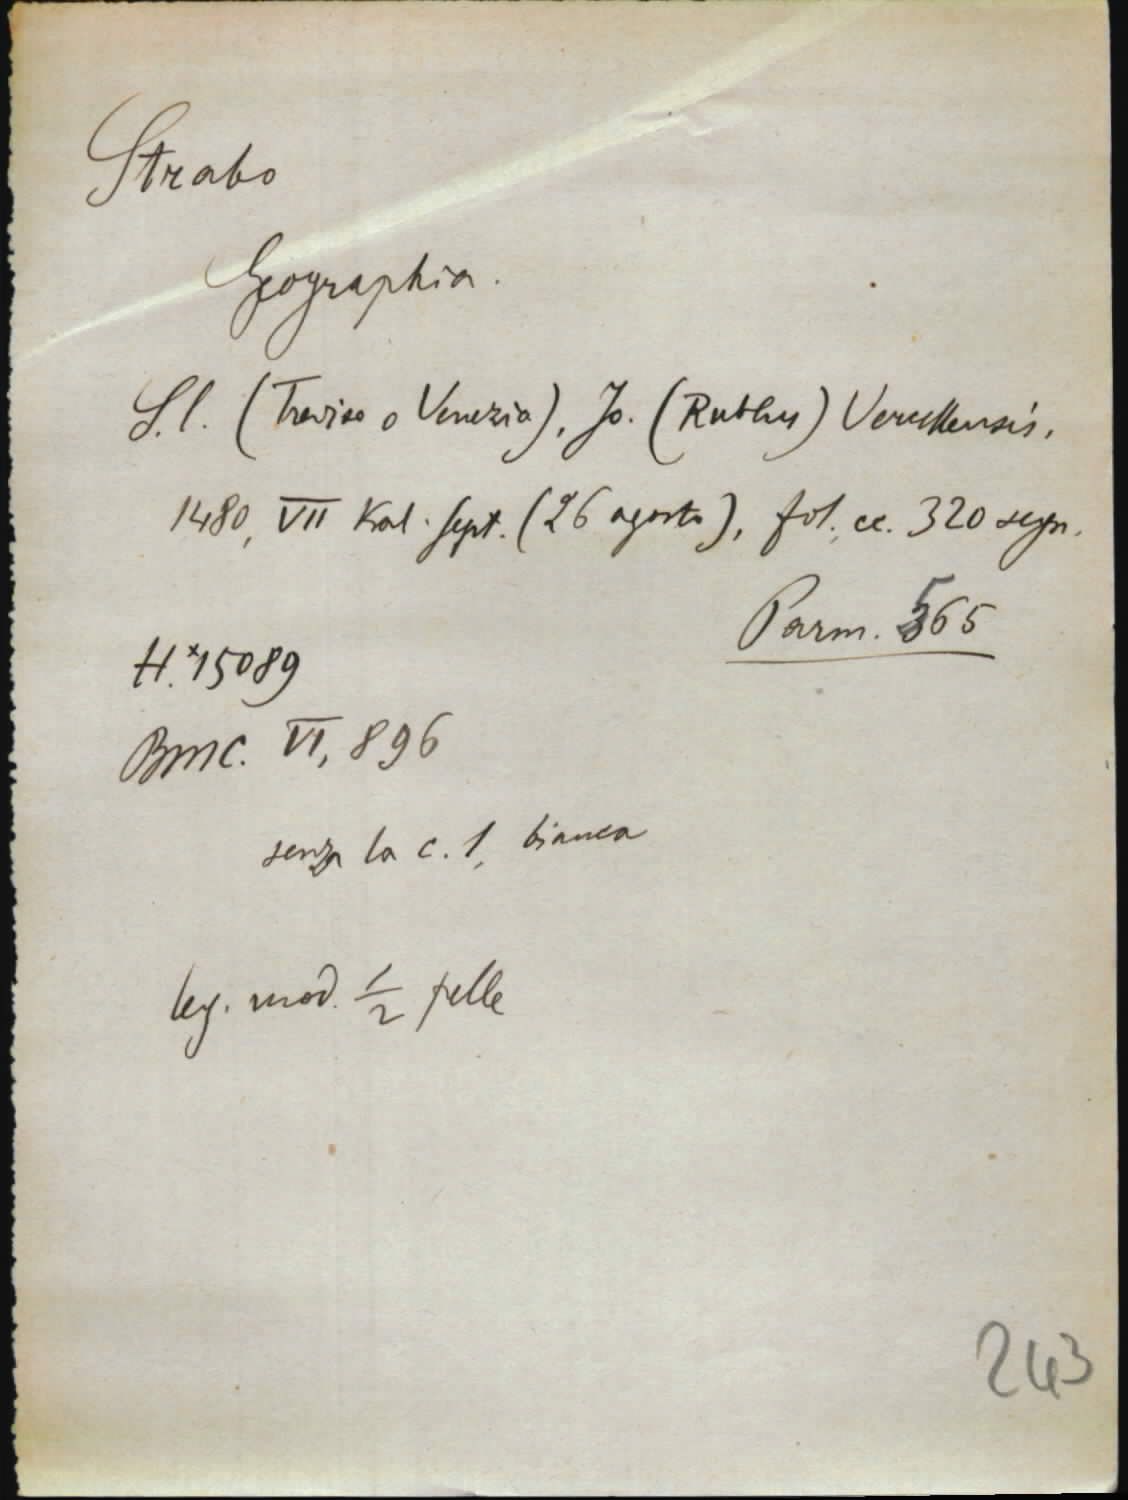 Strabo
Geographia.
S.l. (Treviso o Venezia), Jo. (Rubeus) Vercellensis,
1480, VII Kal. sept. (26 agosto), fol., cc. 320 segn.
Parm. 565
H.*15089
BMC. VI, 896
senza la c. 1, bianca
leg. mod. 1/2 pelle
243